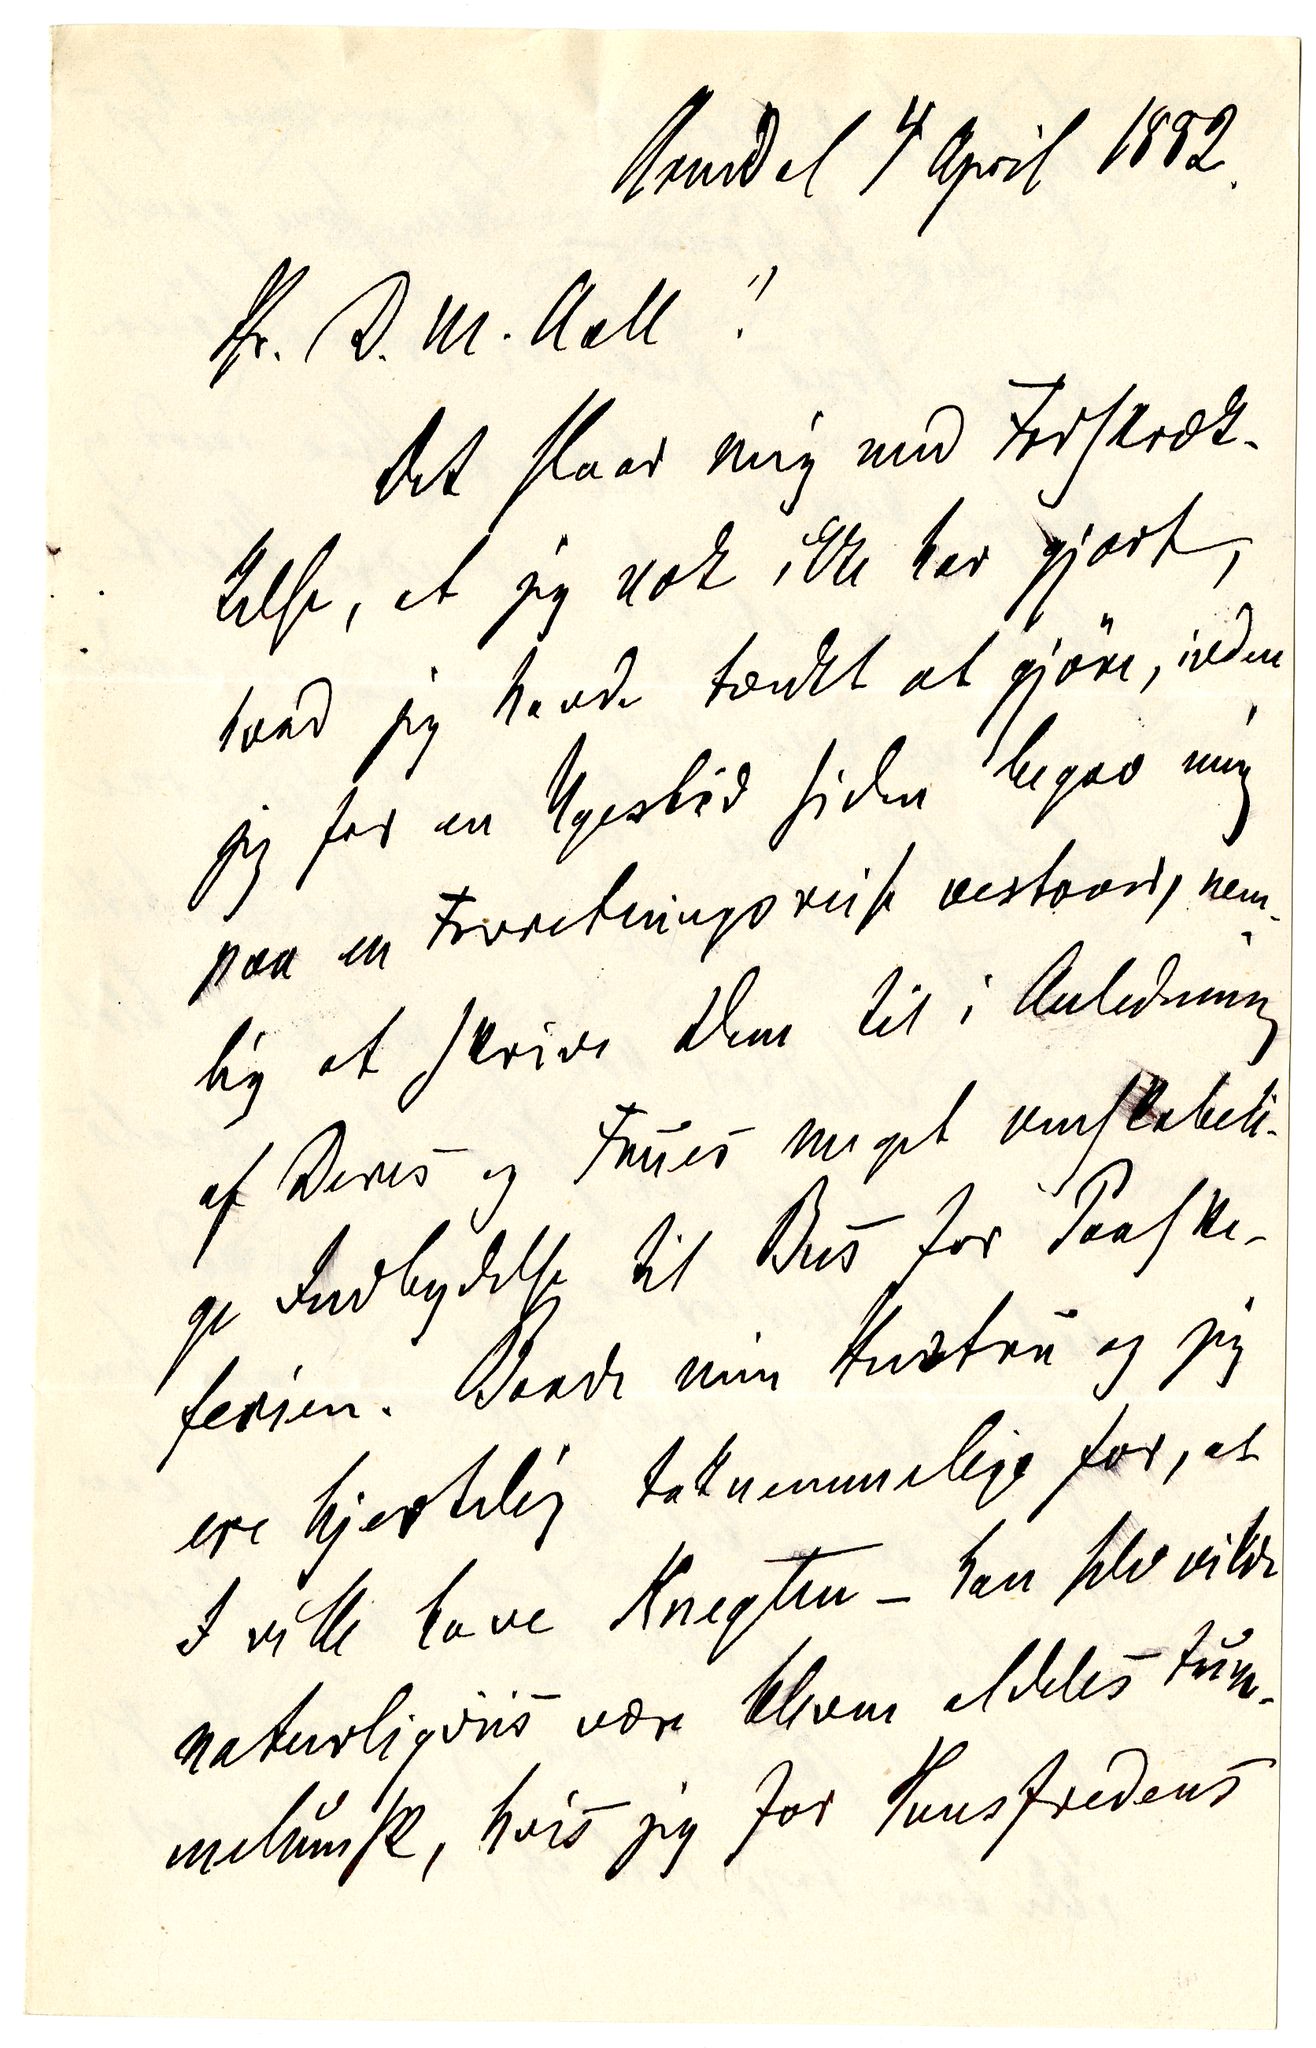 Arendal 4 April 1882.
Hr. D. M. Aall!
Det slaar mig med Forskræk-
kelse, at jeg nok ikke har gjort,
hvad jeg havde tænkt at gjöre, inden
jeg for en Ugestid siden begav mig
paa en Forretningsreise vestover, nem-
lig at skrive Dem til i Anledning
af Deres og Frues meget venskabeli-
ge Indbydelse til Bus for Paaske-
ferien. Baade min Hustru og jeg
ere hjertelig taknemmelige for, at
I ville have Knegten – han selv vilde
naturligviis være bleven aldeles tum-
melumsk, hvis jeg for Huusfredens